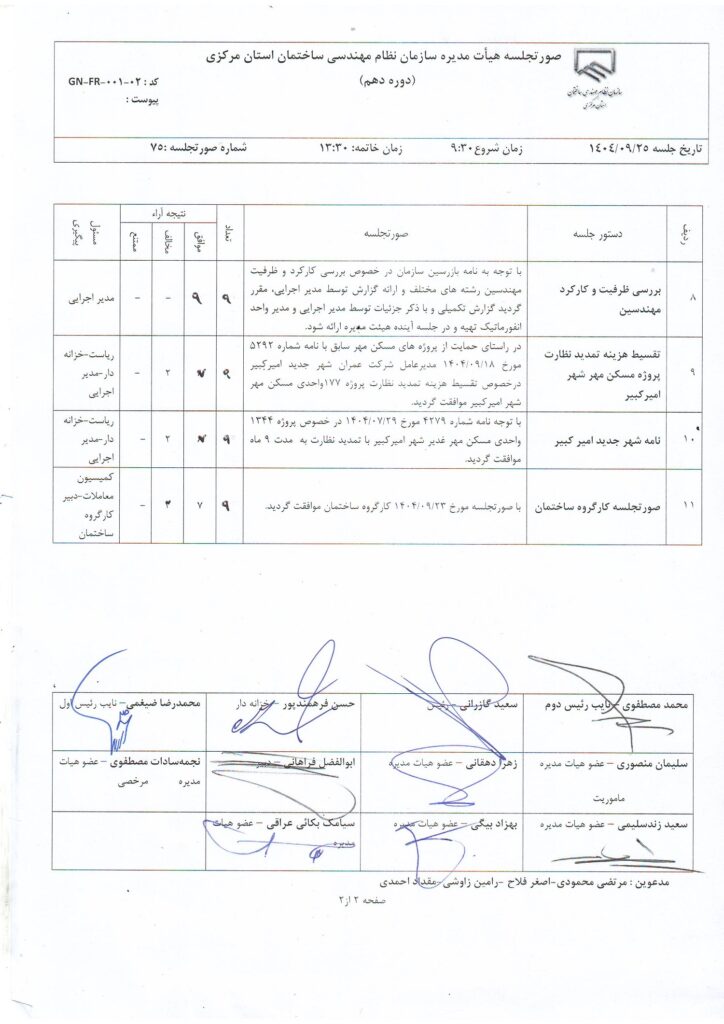 صورتجلسه هیأت مدیره سازمان نظام مهندسی ساختمان استان مرکزی
(دوره دهم)
کد : GN-FR-۰۰۱-۰۲
پیوست :
سازمان نظام مهندسی ساختمان
استان مرکزی
تاریخ جلسه ۱۴۰۴/۰۹/۲۵ زمان شروع ۹:۳۰ زمان خاتمه: ۱۳:۳۰ شماره صورتجلسه :۷۵
ردیف دستور جلسه صورتجلسه تعداد نتیجه آراء مسئول پیگیری
موافق مخالف ممتنع
۸ بررسی ظرفیت و کارکرد مهندسین
با توجه به نامه بازرسین سازمان در خصوص بررسی کارکرد و ظرفیت
مهندسین رشته های مختلف و ارائه گزارش توسط مدیر اجرایی، مقرر
گردید گزارش تکمیلی و با ذکر جزئیات توسط مدیر اجرایی و مدیر واحد
انفورماتیک تهیه و در جلسه آینده هیئت مدیره ارائه شود.
۹ ۹ - - مدیر اجرایی
۹ تقسیط هزینه تمدید نظارت
پروژه مسکن مهر شهر
امیرکبیر
در راستای حمایت از پروژه های مسکن مهر سابق با نامه شماره ۵۲۹۲
مورخ ۱۴۰۴/۰۹/۱۸ مدیرعامل شرکت عمران شهر جدید امیرکبیر
درخصوص تقسیط هزینه تمدید نظارت پروژه ۱۷۷واحدی مسکن مهر
شهر امیرکبیر موافقت گردید.
۹ ۲ - ریاست-خزانه
دار-مدیر
اجرایی
۱۰ نامه شهر جدید امیر کبیر
با توجه به نامه شماره ۴۲۷۹ مورخ ۱۴۰۴/۰۷/۲۹ در خصوص پروژه ۱۳۴۴
واحدی مسکن مهر غدیر شهر امیرکبیر با تمدید نظارت به مدت ۹ ماه
موافقت گردید.
۹ ۲ - ریاست-خزانه
دار-مدیر
اجرایی
۱۱ صورتجلسه کارگروه ساختمان
با صورتجلسه مورخ ۱۴۰۴/۰۹/۲۳ کارگروه ساختمان موافقت گردید.
۹ ۷ - کمیسیون
معاملات-دبیر
کارگروه
ساختمان
محمد مصطفوی – نایب رئیس دوم
سعید گازرانی – رئیس
حسن فرهمندپور – خزانه دار
محمدرضا ضیغمی– نایب رئیس اول
سلیمان منصوری – عضو هیات مدیره
ماموریت
زهرا دهقانی – عضو هیات مدیره
ابوالفضل فراهانی – دبیر
نجمه‌سادات مصطفوی – عضو هیات
مدیره مرخصی
سعید زندسلیمی – عضو هیات مدیره
بهزاد بیگی – عضو هیات مدیره
سیامک بکائی عراقی – عضو هیات
مدیره
مدعوین : مرتضی محمودی-اصغر فلاح -رامین زاوشی-مقداد احمدی
صفحه ۲ از۲